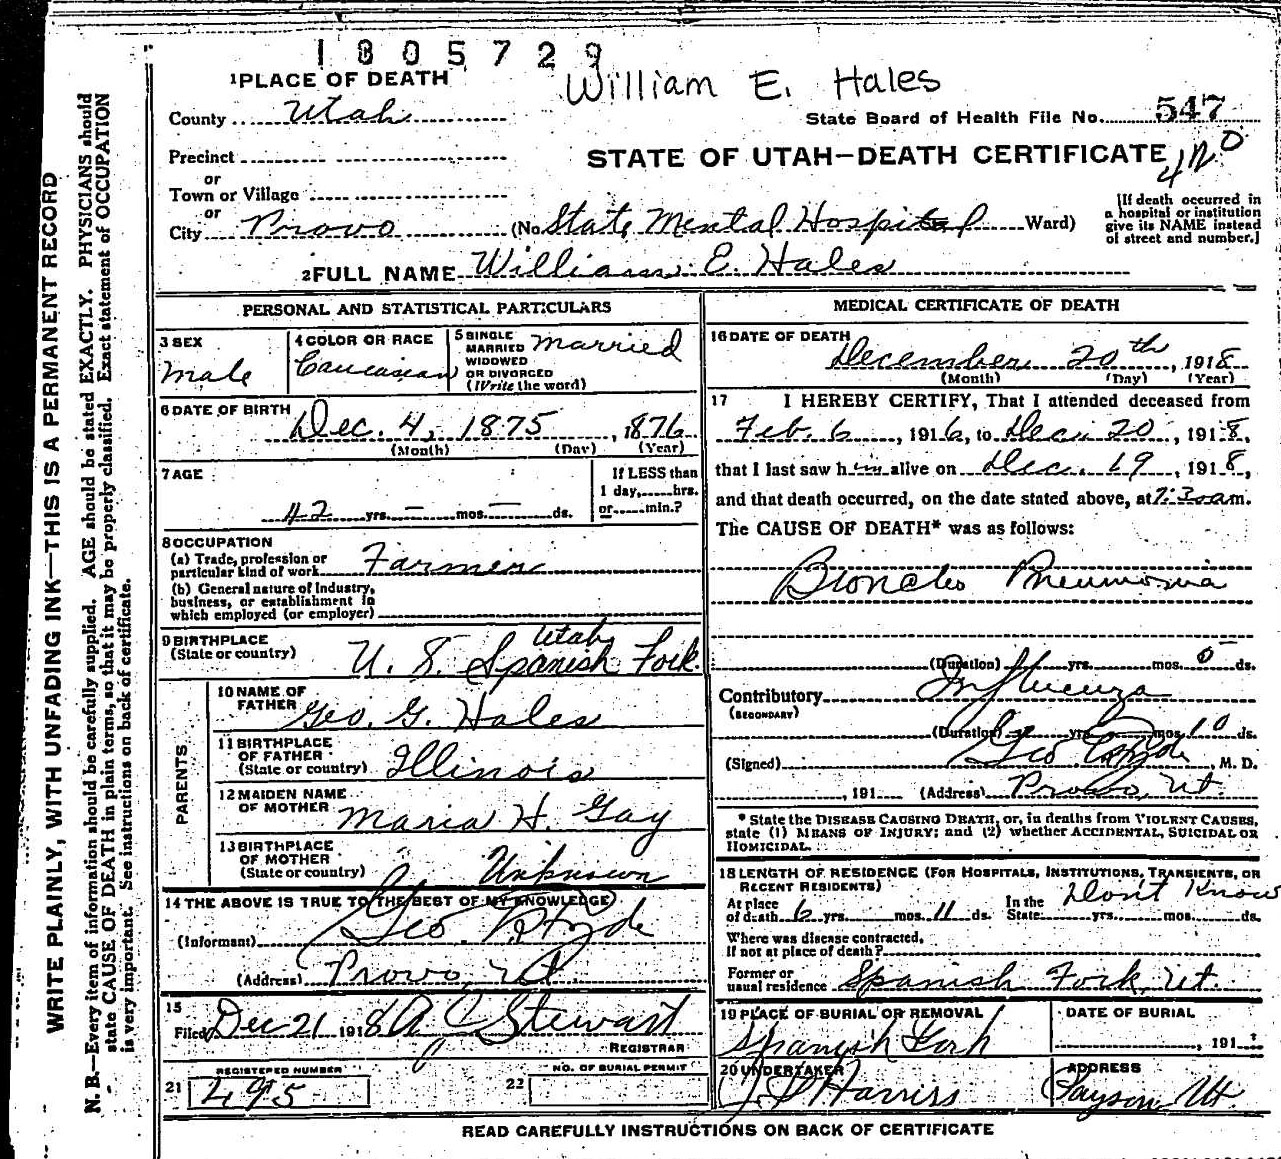 1805729
1 PLACE OF DEATH
William E. Hales
County Utah
State Board of Health File No. 547
Precinct
STATE OF UTAH—DEATH CERTIFICATE
or
Town or Village
or
City Provo (No State Mental Hospital Ward)
[If death occurred in
a hospital or institution
give its NAME instead
of street and number.]
2 FULL NAME William E. Hales
PERSONAL AND STATISTICAL PARTICULARS
3 SEX
Male
4 COLOR OR RACE
Caucasian
5 SINGLE
MARRIED
WIDOWED
OR DIVORCED
(Write the word)
Married
6 DATE OF BIRTH
Dec. 4, 1875, 1876
(Month) (Day) (Year)
7 AGE
42 yrs. — mos. — ds.
If LESS than
1 day, hrs.
or min.?
8 OCCUPATION
(a) Trade, profession or
particular kind of work Farmer
(b) General nature of industry,
business, or establishment in
which employed (or employer)
9 BIRTHPLACE
(State or country)
Utah
U. S. Spanish Fork
PARENTS
10 NAME OF
FATHER
Geo. G. Hales
11 BIRTHPLACE
OF FATHER
(State or country) Illinois
12 MAIDEN NAME
OF MOTHER Maria H. Gay
13 BIRTHPLACE
OF MOTHER
(State or country)
Unknown
14 THE ABOVE IS TRUE TO THE BEST OF MY KNOWLEDGE
(Informant) Geo. Hyde
(Address) Provo, Ut.
15
Filed Dec 21 1918 A C Stewart
REGISTRAR
21 REGISTERED NUMBER
495
22 NO. OF BURIAL PERMIT
MEDICAL CERTIFICATE OF DEATH
16 DATE OF DEATH
December 20th, 1918
(Month) (Day) (Year)
17 I HEREBY CERTIFY, That I attended deceased from
Feb. 6, 1916, to Dec. 20, 1918,
that I last saw him alive on Dec. 19, 1918,
and that death occurred, on the date stated above, at 7:30 am.
The CAUSE OF DEATH* was as follows:
Broncho Pneumonia
(Duration) yrs. mos. 5 ds.
Contributory Influenza
(SECONDARY)
(Duration) yrs. mos. 10 ds.
(Signed) Geo Hyde, M. D.
, 191 (Address) Provo, Ut.
* State the DISEASE CAUSING DEATH, or, in deaths from VIOLENT CAUSES,
state (1) MEANS OF INJURY; and (2) whether ACCIDENTAL, SUICIDAL OR
HOMICIDAL.
18 LENGTH OF RESIDENCE (FOR HOSPITALS, INSTITUTIONS, TRANSIENTS, OR
RECENT RESIDENTS)
At place
of death 6 yrs. mos. 11 ds.
In the
State yrs. mos. ds.
Don't Know
Where was disease contracted,
if not at place of death?
Former or
usual residence Spanish Fork, Ut.
19 PLACE OF BURIAL OR REMOVAL
Spanish Fork
DATE OF BURIAL
, 191
20 UNDERTAKER
Harriss
ADDRESS
Payson Ut.
READ CAREFULLY INSTRUCTIONS ON BACK OF CERTIFICATE
WRITE PLAINLY, WITH UNFADING INK—THIS IS A PERMANENT RECORD
N. B.—Every item of information should be carefully supplied. AGE should be stated EXACTLY. PHYSICIANS should
state CAUSE OF DEATH in plain terms, so that it may be properly classified. Exact statement of OCCUPATION
is very important. See instructions on back of certificate.